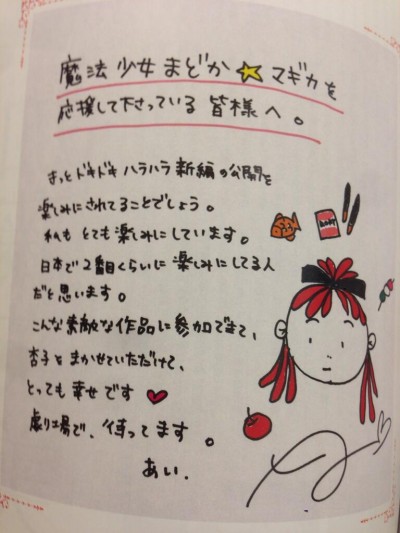 魔法少女まどか☆マギカを
応援して下さっている皆様へ。
きっとドキドキハラハラ新編の公開を
楽しみにされてることでしょう。
私もとても楽しみにしています。
日本で2番目くらいに楽しみにしてる人
だと思います。
こんな素敵な作品に参加できて、
杏子をまかせていただけて、
とっても幸せです♥
劇場で、待ってます。
あい.